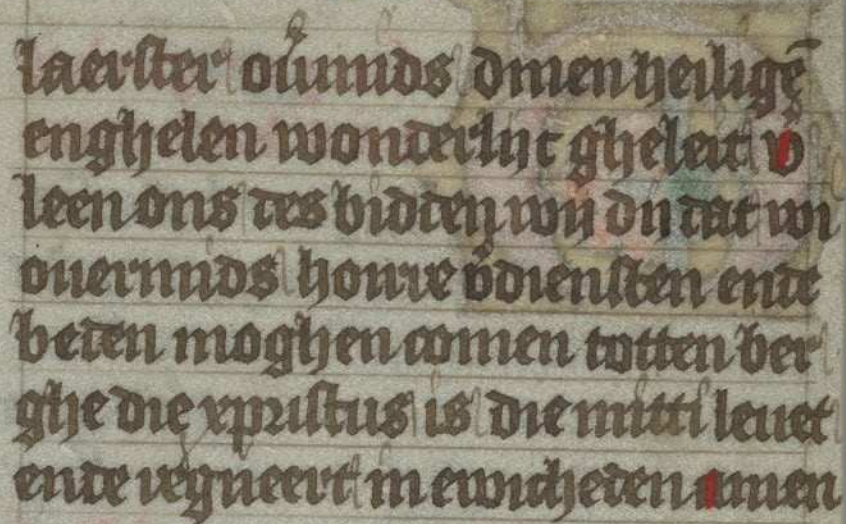 laerster ouͥmids dinen heilighē
enghelen wonderlijc gheleit v̄
leen ons des bidden wij di dat wi
ouermids hoirre v̄diensten ende
beden moghen comen totten ber
ghe die xpristus is die mitti leuet
ende regneert in ewicheden amen